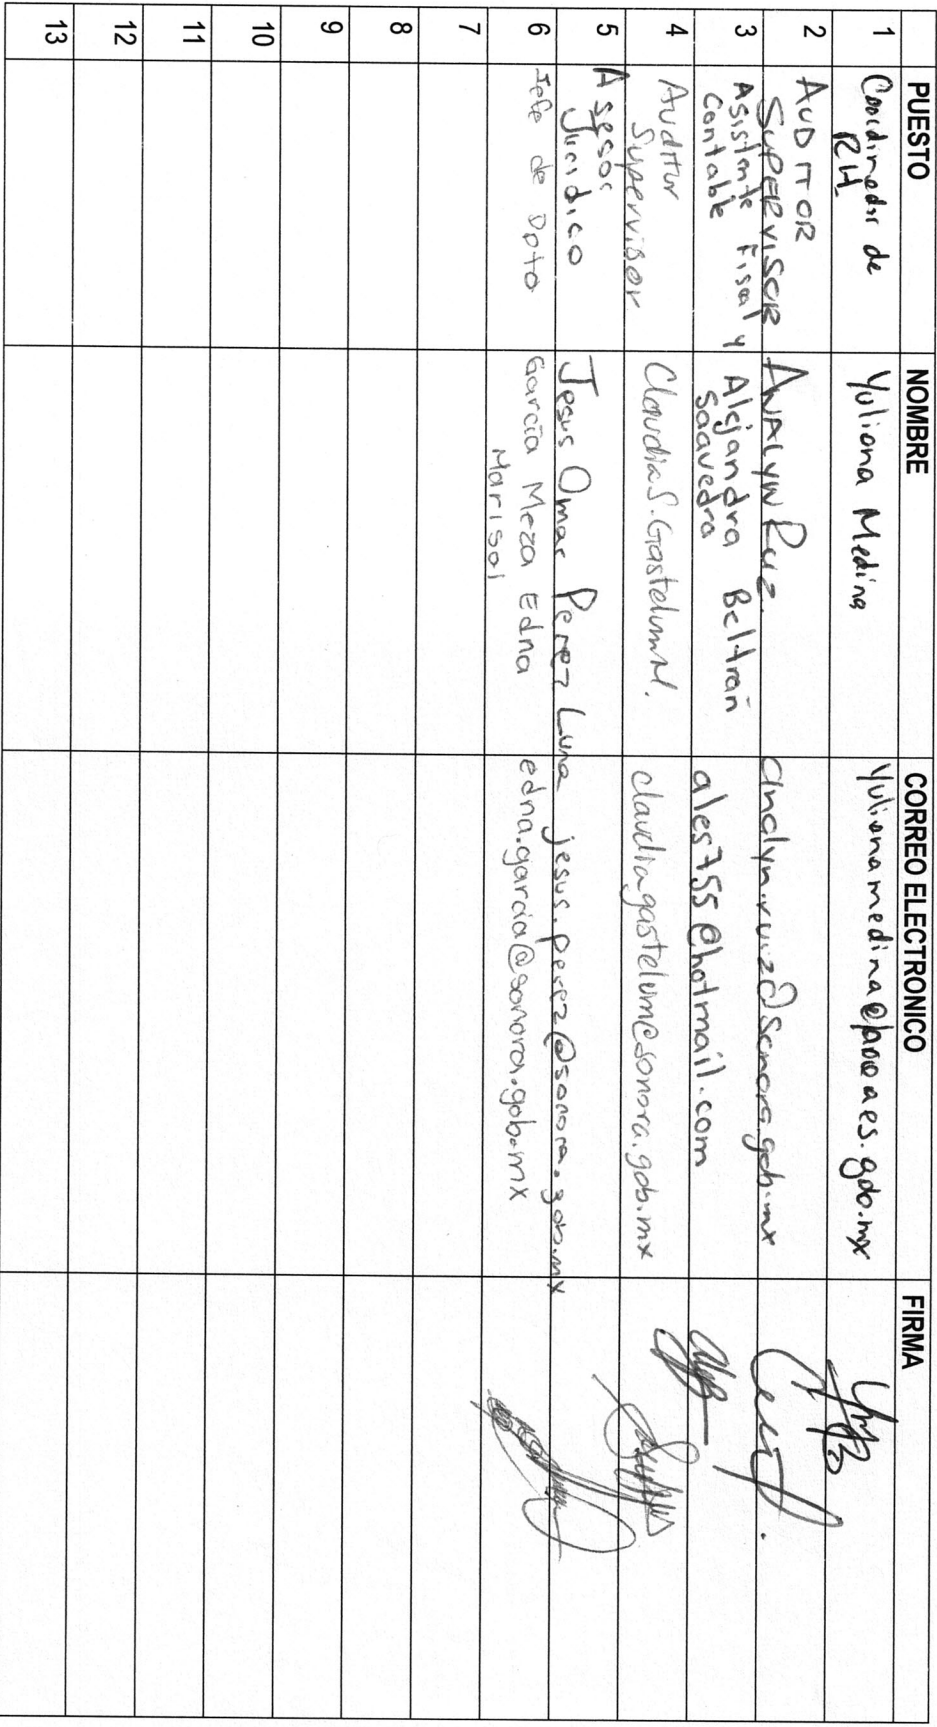 PUESTO NOMBRE CORREO ELECTRONICO FIRMA
1 Coordinador de RH Yuliana Medina
2 AUDITOR SUPERVISOR ANALYN Ruiz. analyn.ruiz@sonora.gob.mx
3 Asistente Fiscal y Contable Alejandra Beltrán Saavedra ales755@hotmail.com
4 Auditor Supervisor Claudia S. Gastelum M. claudia.gastelum@sonora.gob.mx
5 Asesor Juridico Jesus Omar Perez Luna jesus.perez@sonora.gob.mx
6 Jefe de Dpto García Meza Edna Marisol edna.garcia@sonora.gob.mx
7
8
9
10
11
12
13